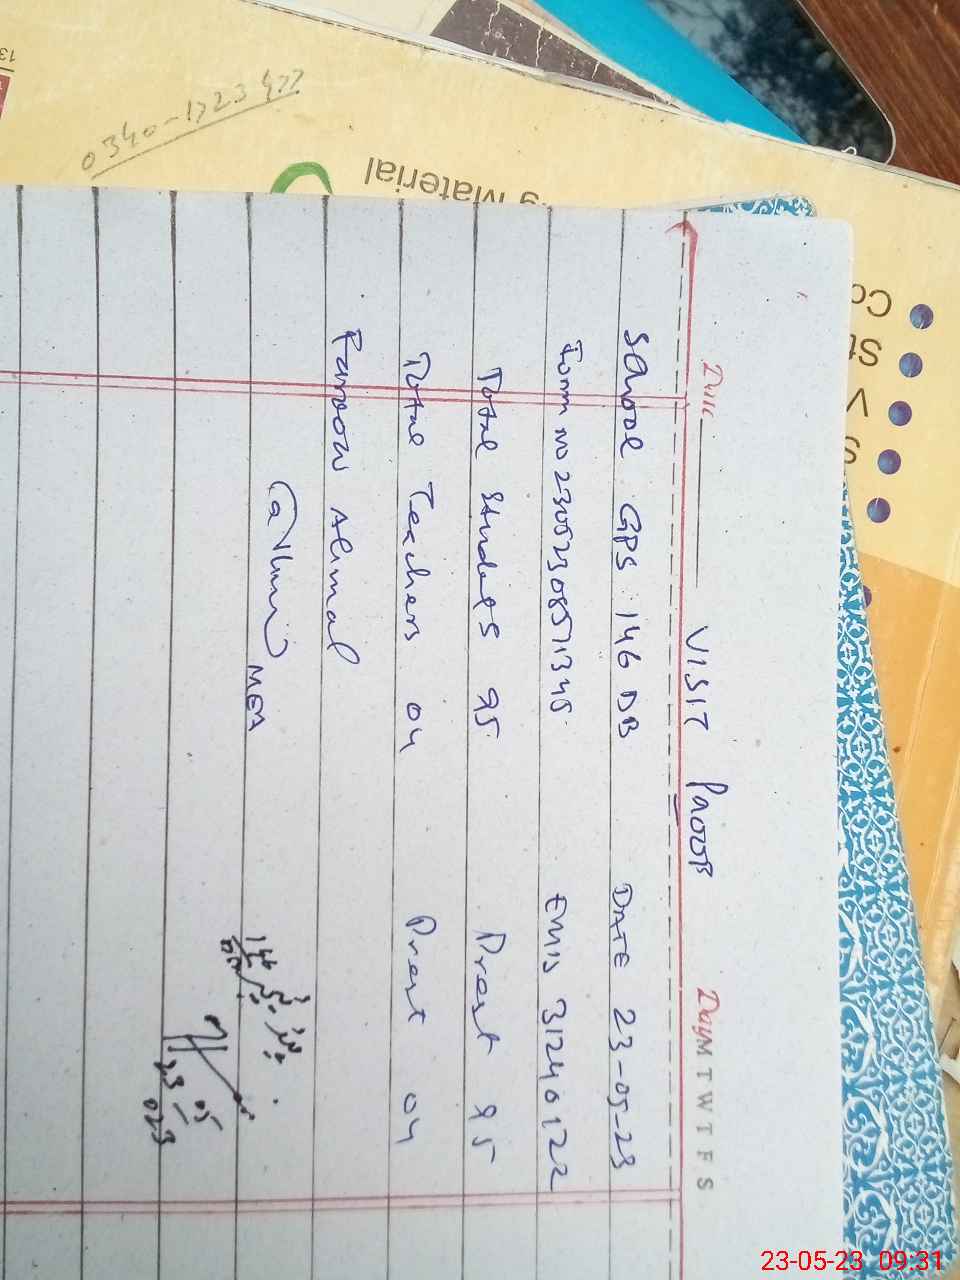 VISIT PROOF
Date
Day M T W T F S
School GPS 146 DB DATE 23-05-23
Form no 23052308571345 EMIS 31240122
Total Students 95 Prest 95
Total Teachers 04 Prest 04
Farooq Ahmad
MEA
146
23 05
023
0340-1723477
Material
Co
St
V
S
13
23-05-23 09:31